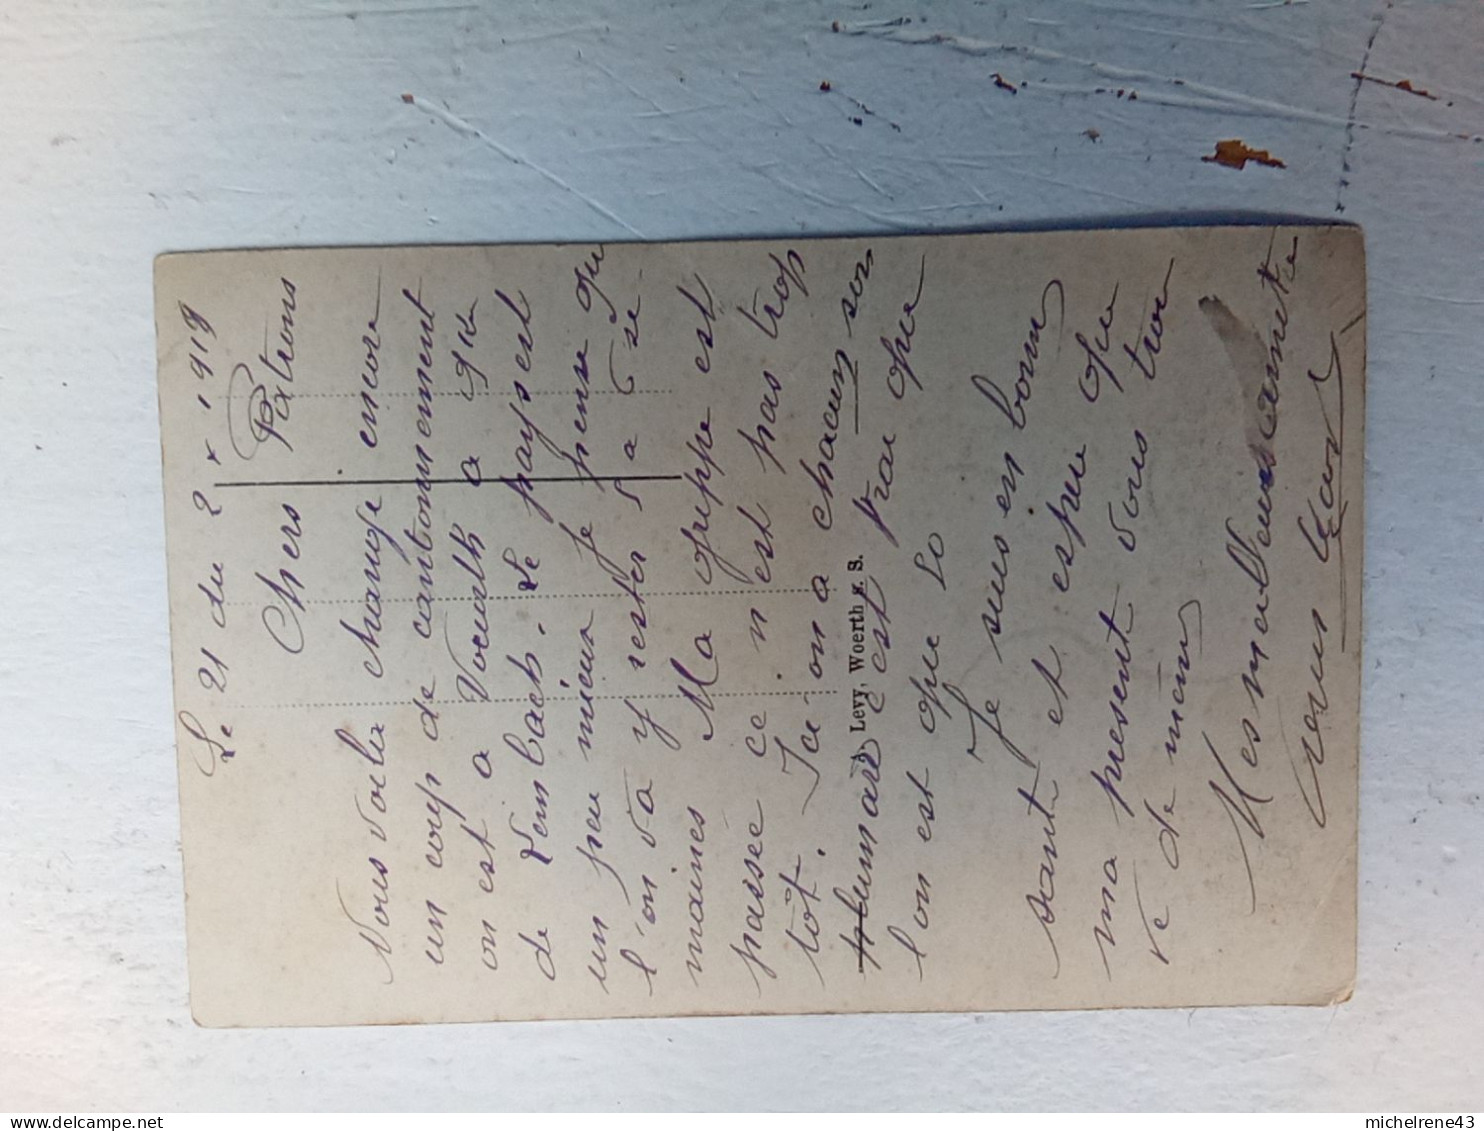 Le 21 du 2 x 1919
Chers Patrons
Vous voila change encore
un coup de cantonnement
on est a Voeurth a 9 Km
de Lembach. Le pays est
un peu mieux je pense qu
l'on va y rester 5 a 6 se
maines Ma grippe est
passee ce n est pas trop
tôt. Ici on a chacun son
plumard c'est vrai que
l'on est que 20
Je suis en bonn
santé et espere que
ma present vous trou
ve de meme
Mes meilleurs amitie
Levy, Woerth a. S.
michelrene43
delcampe.net